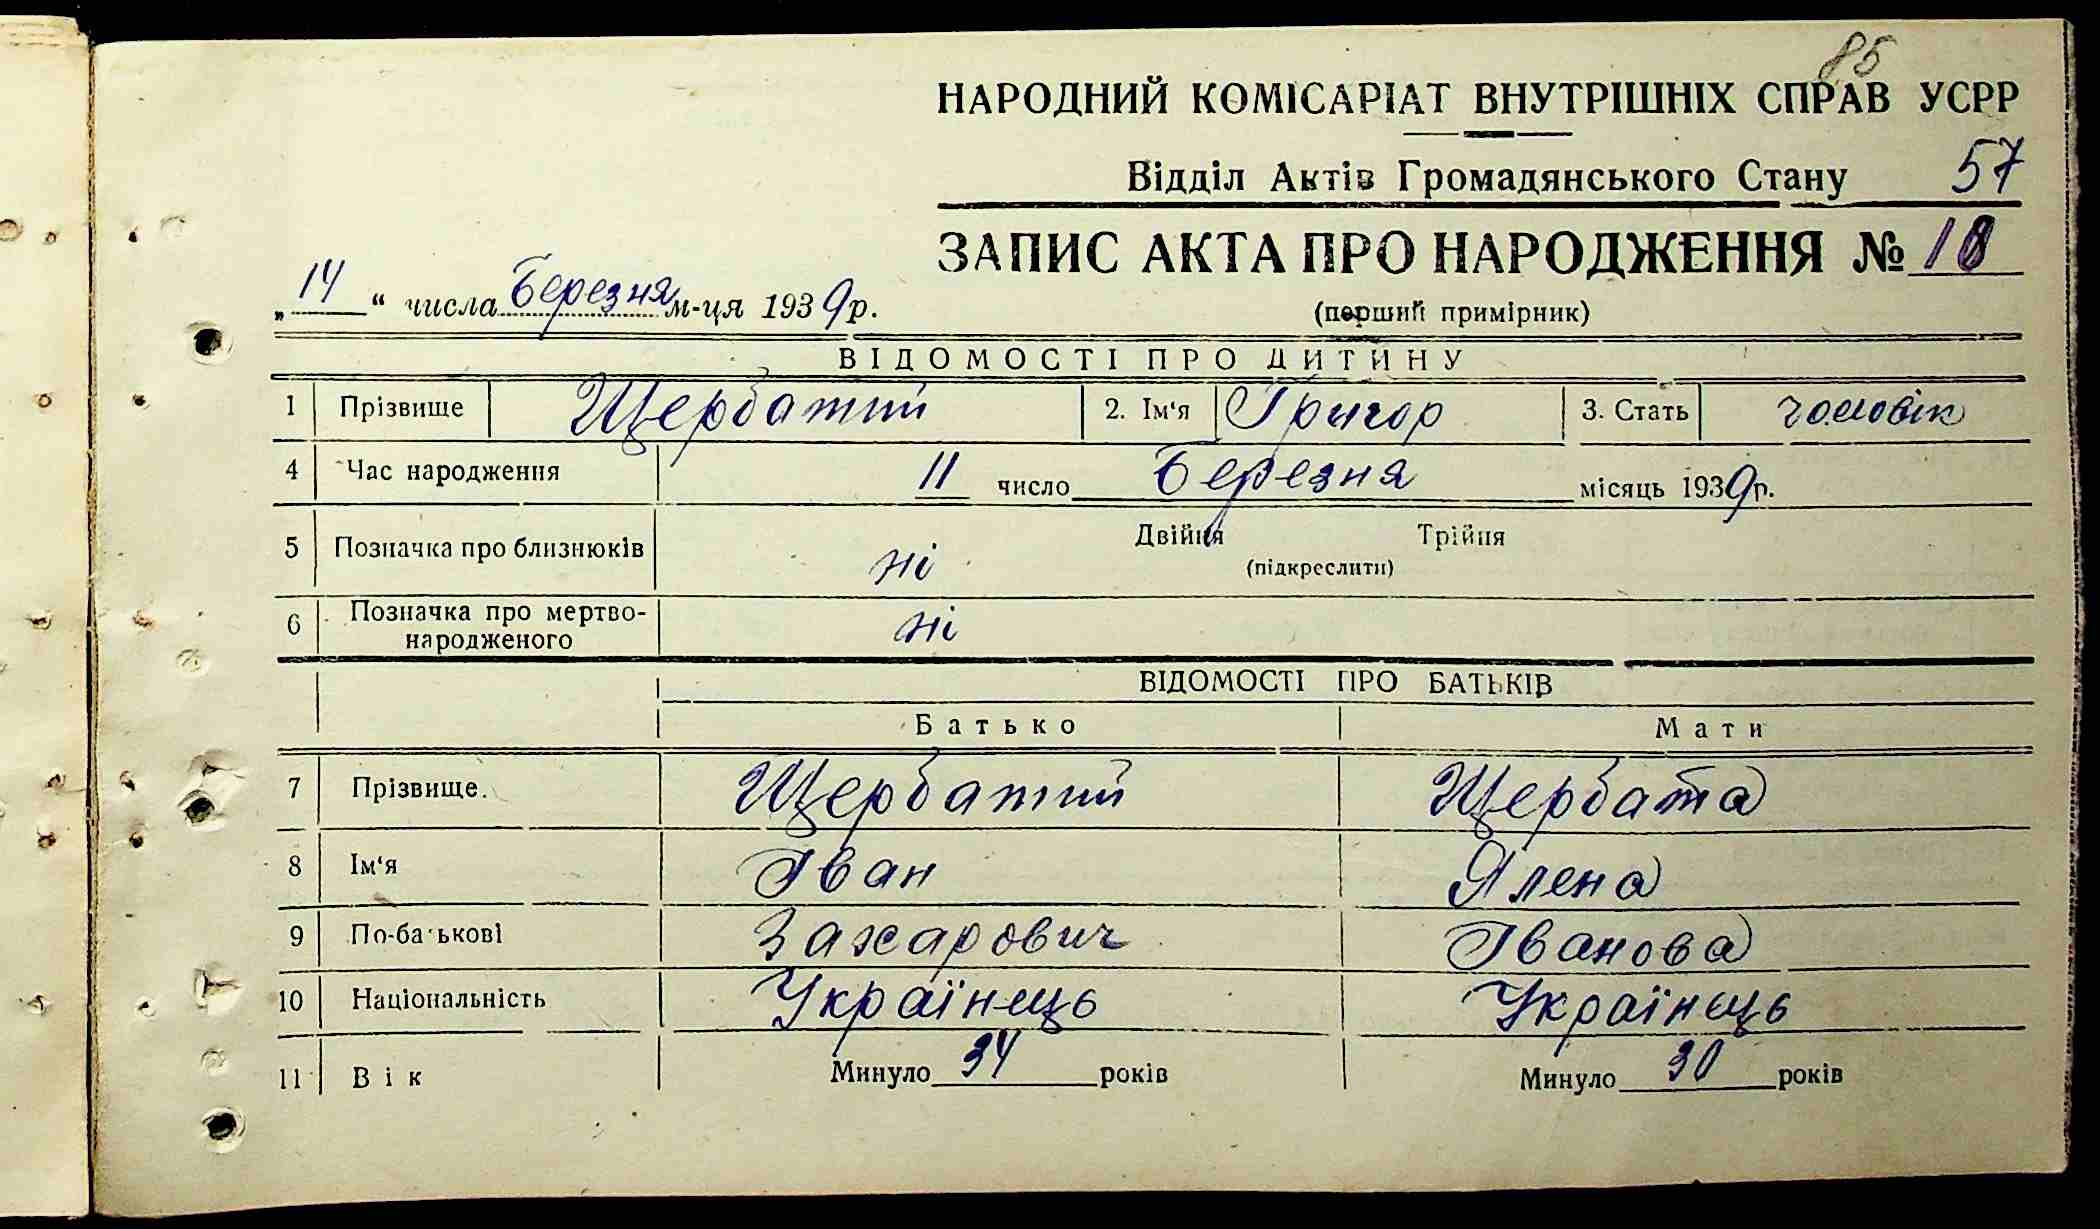 85
НАРОДНИЙ КОМІСАРІАТ ВНУТРІШНІХ СПРАВ УСРР
Відділ Актів Громадянського Стану 57
ЗАПИС АКТА ПРО НАРОДЖЕННЯ № 18
„14“ числа Березня м-ця 1939 р.
(перший примірник)
ВІДОМОСТІ ПРО ДИТИНУ
1 Прізвище Щербатий 2. Ім‘я Григор 3. Стать чоловік
4 Час народження 11 число Березня місяць 1939 р.
5 Позначка про близнюків ні Двійня Трійня
(підкреслити)
6 Позначка про мертво-
народженого ні
ВІДОМОСТІ ПРО БАТЬКІВ
Батько Мати
7 Прізвище. Щербатий Щербата
8 Ім‘я Іван Ялена
9 По-батькові Захарович Іванова
10 Національність Українець Українець
11 Вік Минуло 34 років Минуло 30 років